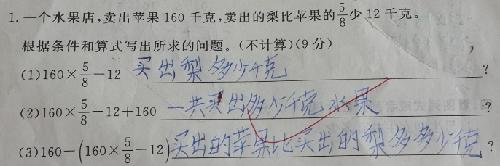 1.一个水果店,卖出苹果 160 千克,卖出的梨比苹果的5/8少 12 千克。
根据条件和算式写出所求的问题。(不计算)(9 分)
(1)160×5/8-12 买出梨多少千克?
(2)160×5/8-12+160 一共买出多少千克水果?
(3)160-(160×5/8-12)买出的苹果比买出的梨多多少千克?